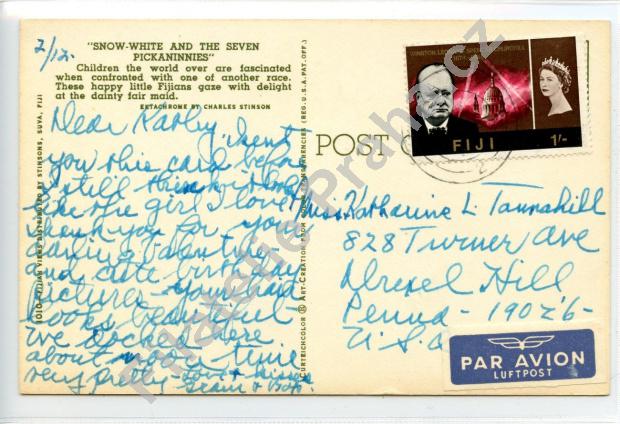 2/12.
"SNOW-WHITE AND THE SEVEN
PICKANINNIES"
Children the world over are fascinated
when confronted with one of another race.
These happy little Fijians gaze with delight
at the dainty fair maid.
EKTACHROME BY CHARLES STINSON
Dear Kathy, I sent
you this card before
I still think it looks
like the girl I love
Thank you for your
darling Valentine
and cute birthday
pictures - your hand
looks beautiful
We docked here
about noon time
very pretty - love + kisses
Gram + Bop.
DISTRIBUTED BY STINSONS, SUVA, FIJI
CURTEICHCOLOR ® ART-CREATION FROM TRANSPARENCIES (REG. U.S.A. PAT. OFF.)
POST
WINSTON SPENCER CHURCHILL
FIJI
1/-
Miss Katharine L Tannahill
828 Turner Ave
Drexel Hill
Penna - 19026 -
U.S.A
PAR AVION
LUFTPOST
Filatelie-Praha.cz